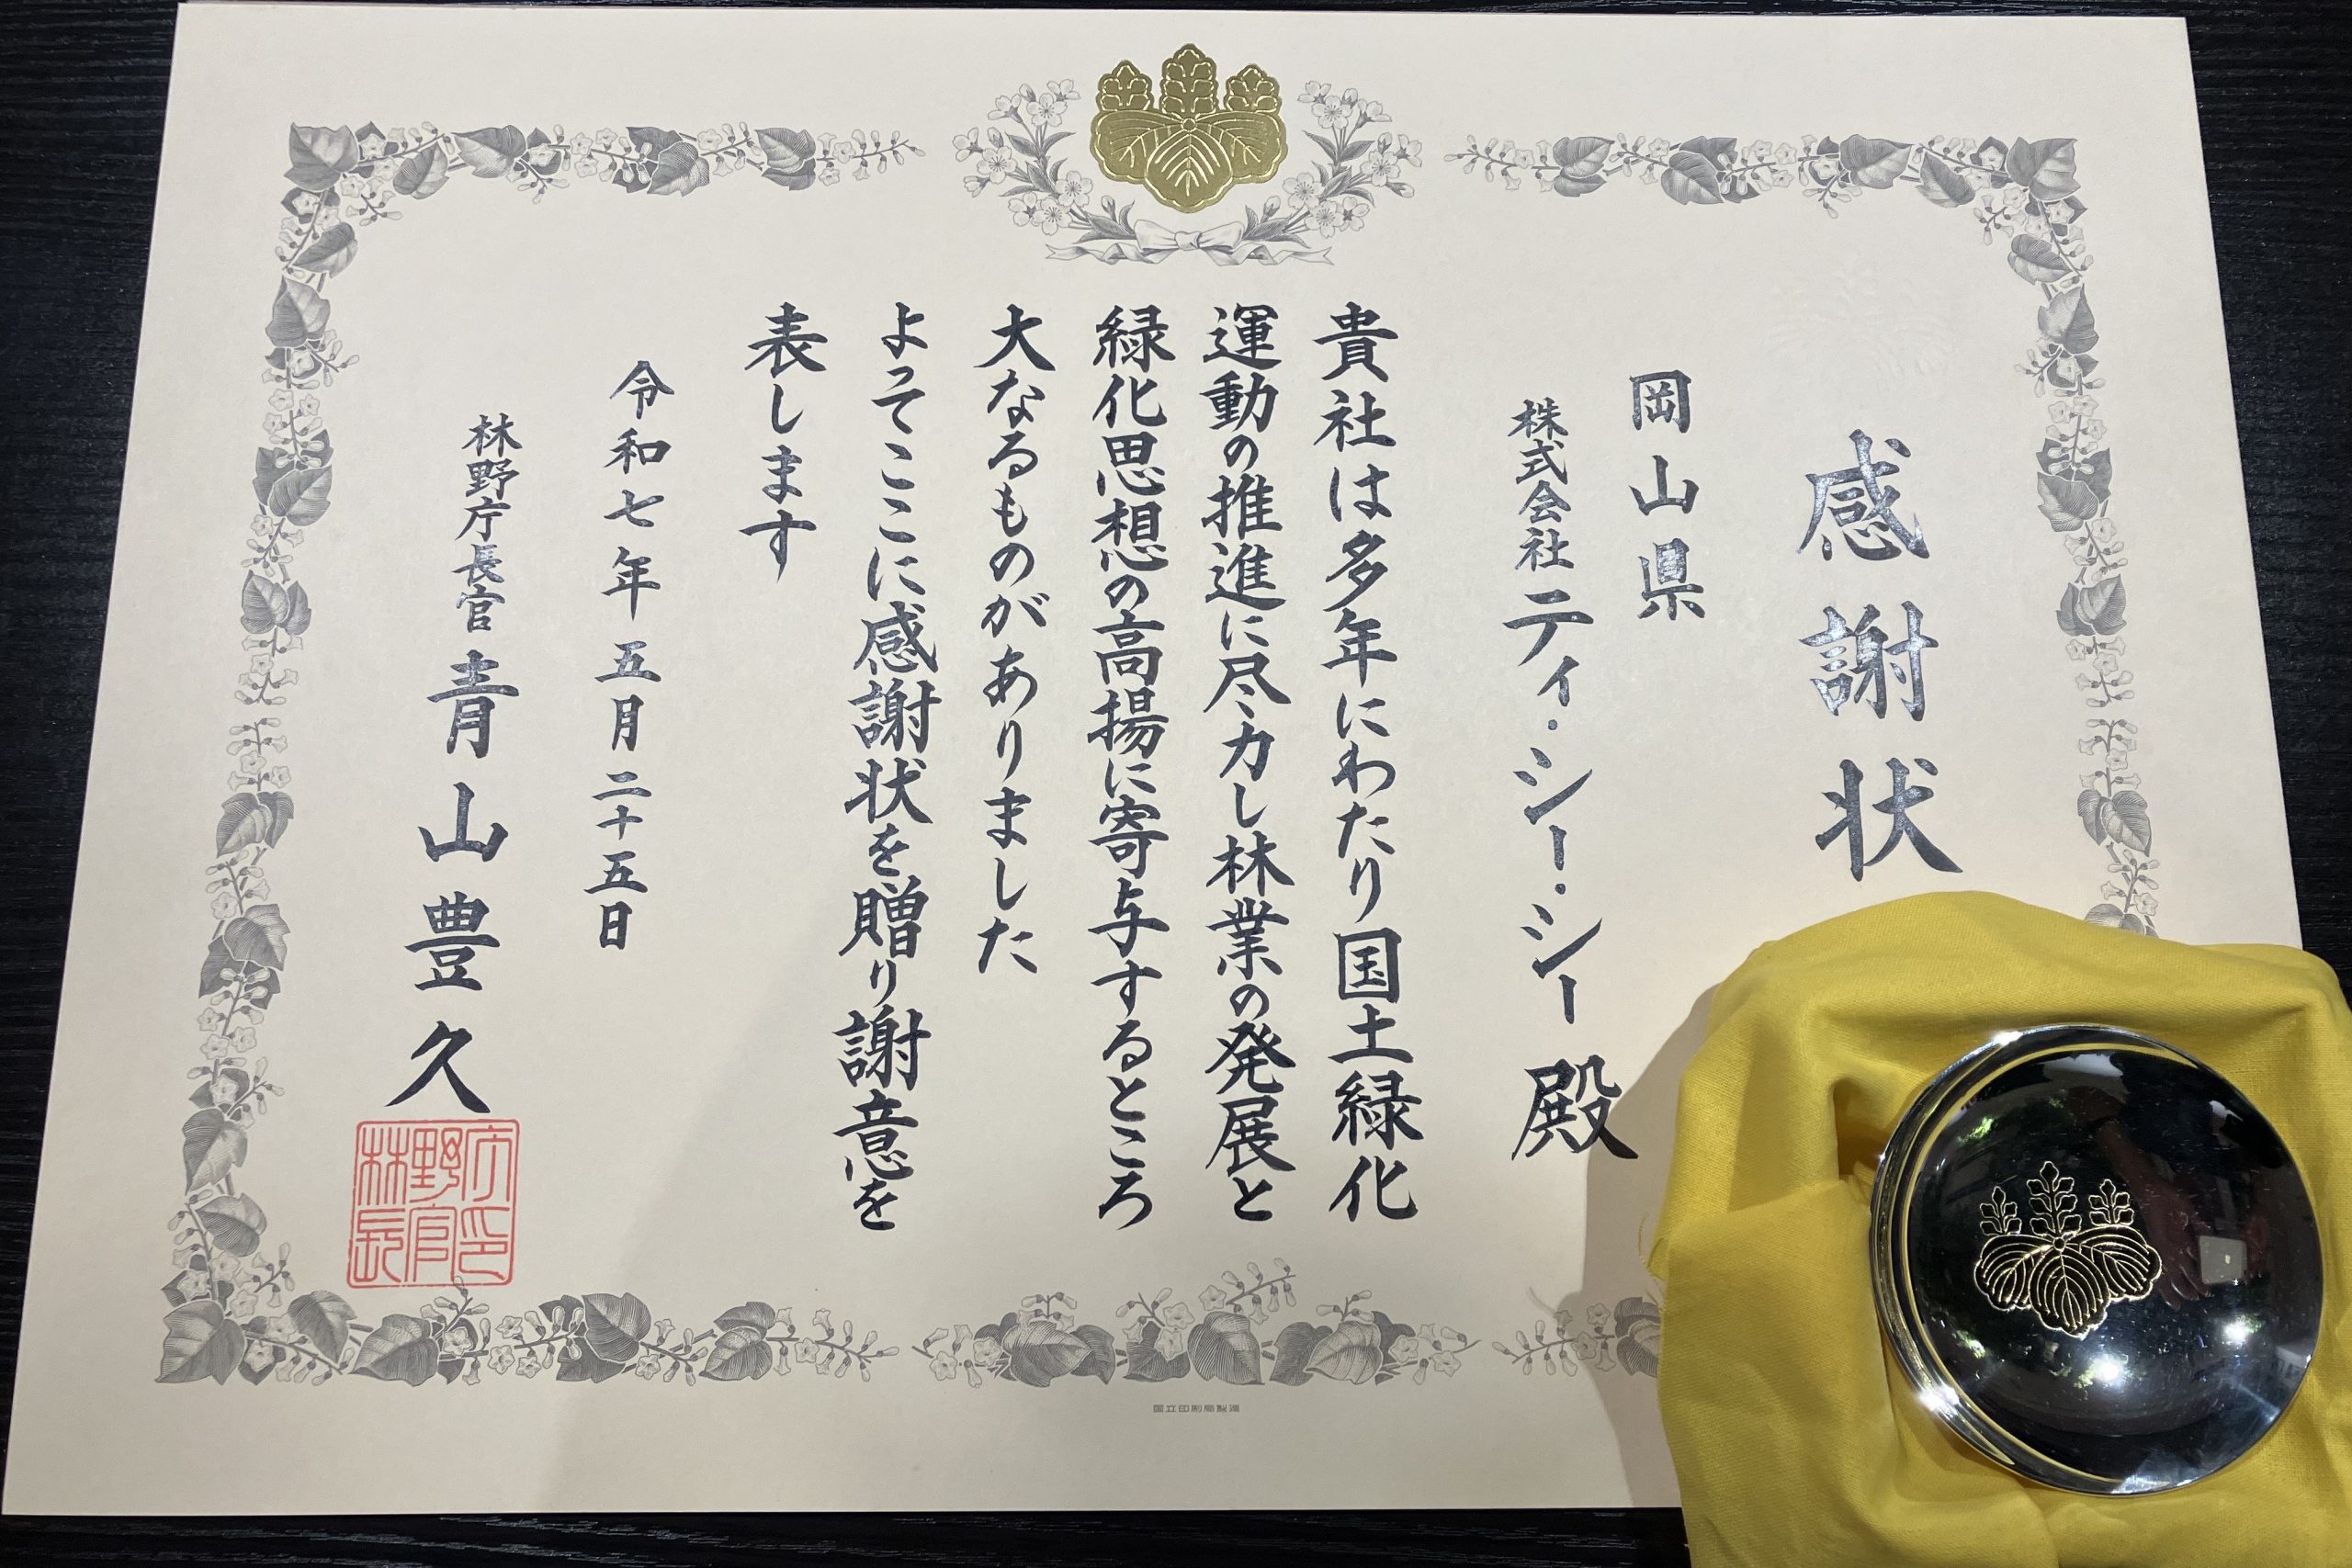 感謝状
岡山県
株式会社ティ・シー・シー 殿
貴社は多年にわたり国土緑化
運動の推進に尽力し林業の発展と
緑化思想の高揚に寄与するところ
大なるものがありました
よってここに感謝状を贈り謝意を
表します
令和七年五月二十五日
林野庁長官 青山豊久
林野庁
長官印
国立印刷局製造